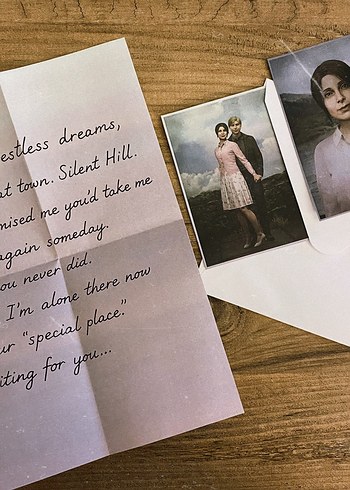 estless dreams,
at town. Silent Hill.
mised me you'd take me
again someday.
ou never did.
I'm alone there now
ur "special place."
iting for you...